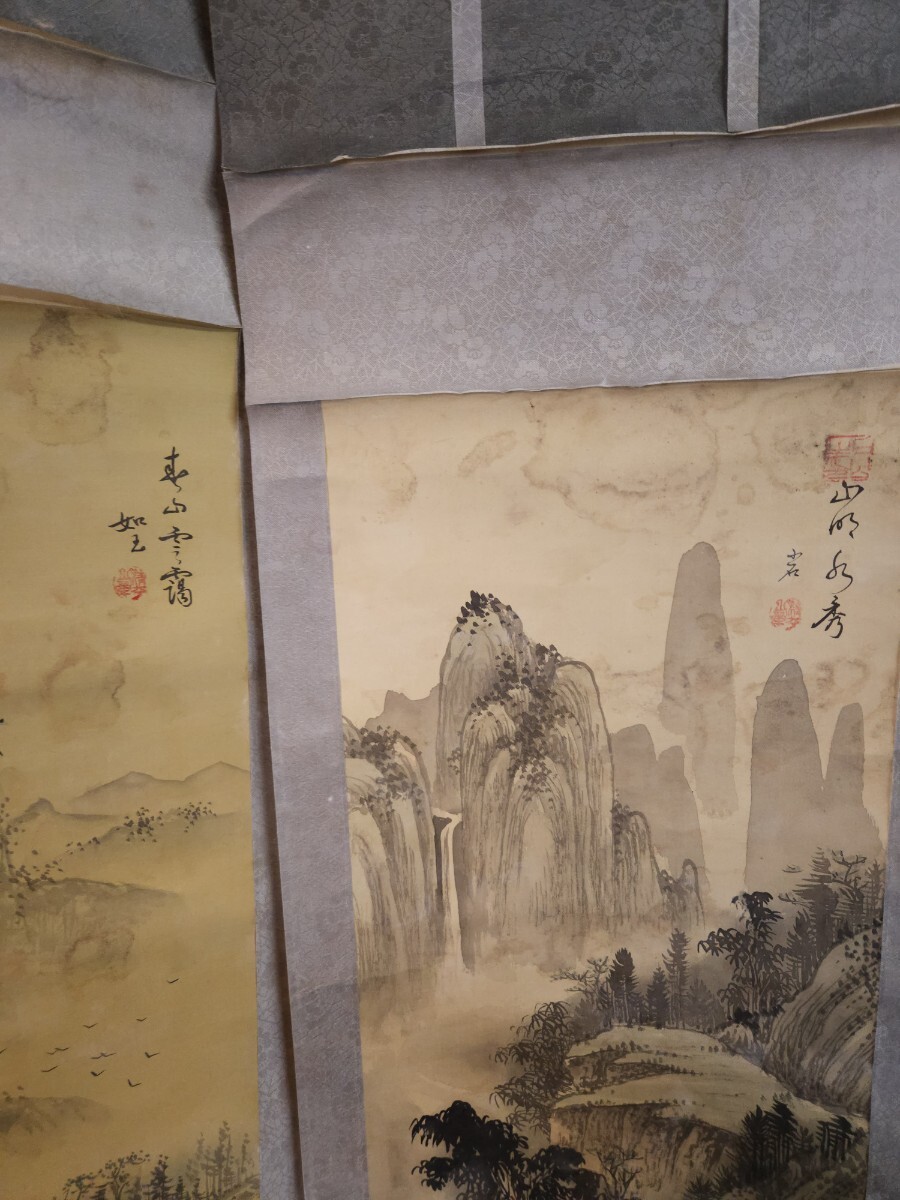 山明水秀
小岩
春山雲靄
如玉